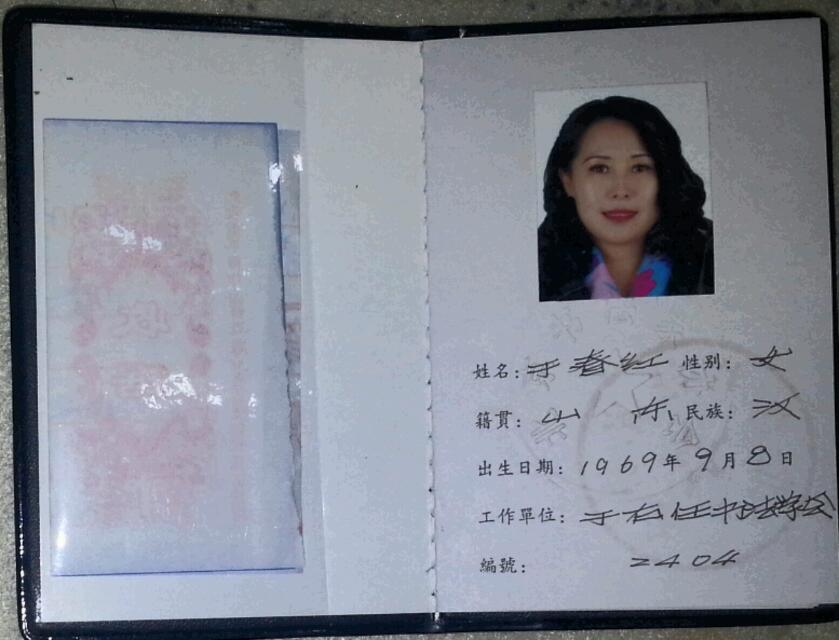 姓名：于春红 性别：女
籍贯： 山 东 民族：汉
出生日期：1969年9月8日
工作單位：于右任书法学会
編號： 2404